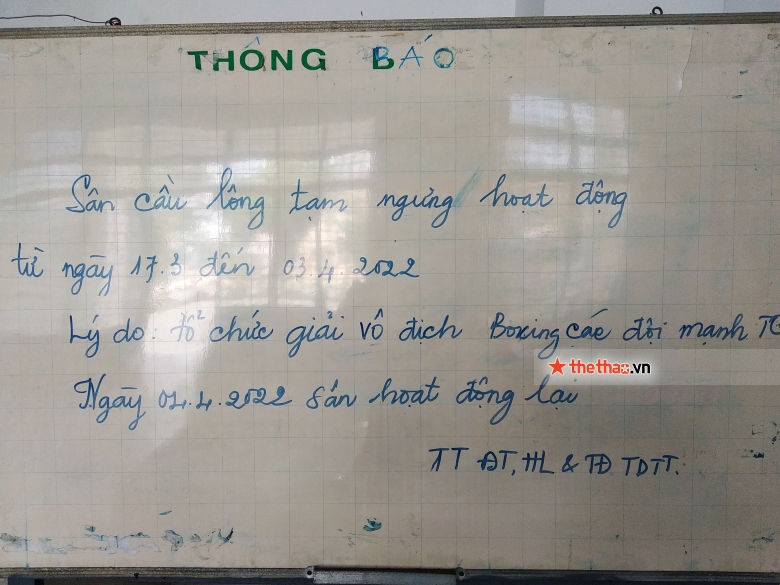 THÔNG BÁO
Sân cầu lông tạm ngưng hoạt động
từ ngày 17.3 đến 03.4.2022
Lý do: tổ chức giải vô địch Boxing các đội mạnh TQ
thethao.vn
Ngày 04.4.2022 sân hoạt động lại
TT ĐT, HL & TĐ TDTT.